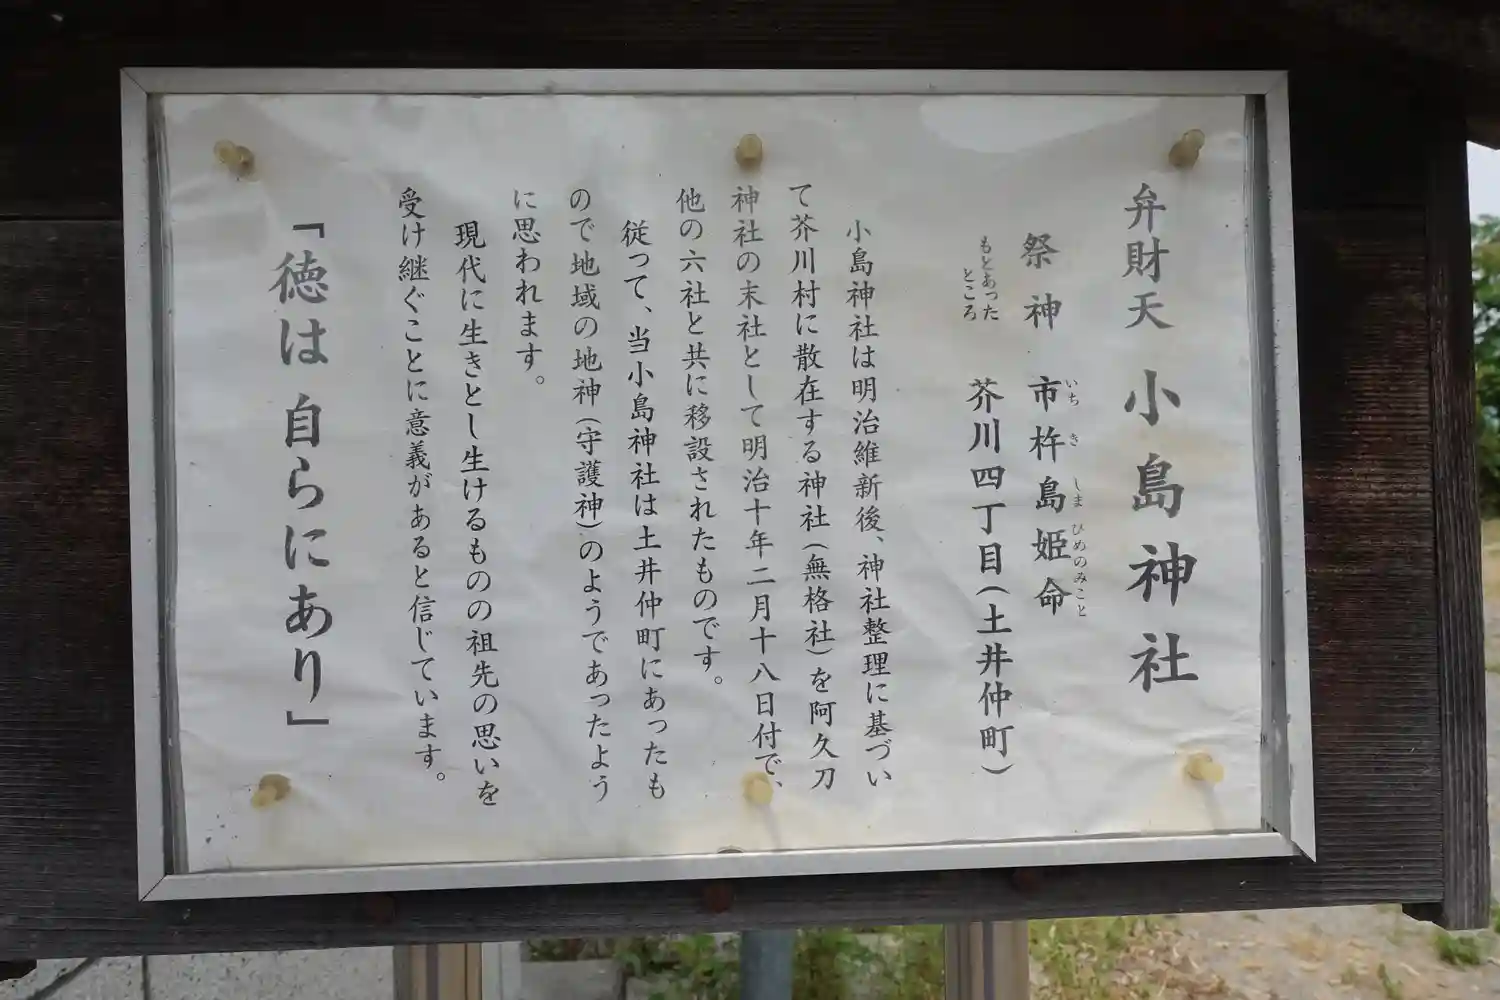 弁財天 小島神社
祭神 市杵島姫命
いち き しま ひめのみこと
もとあったところ 芥川四丁目(土井仲町)
小島神社は明治維新後、神社整理に基づい
て芥川村に散在する神社(無格社)を阿久刀
神社の末社として明治十年二月十八日付で、
他の六社と共に移設されたものです。
従って、当小島神社は土井仲町にあったも
ので地域の地神(守護神)のようであったよう
に思われます。
現代に生きとし生けるものの祖先の思いを
受け継ぐことに意義があると信じています。
「徳は自らにあり」